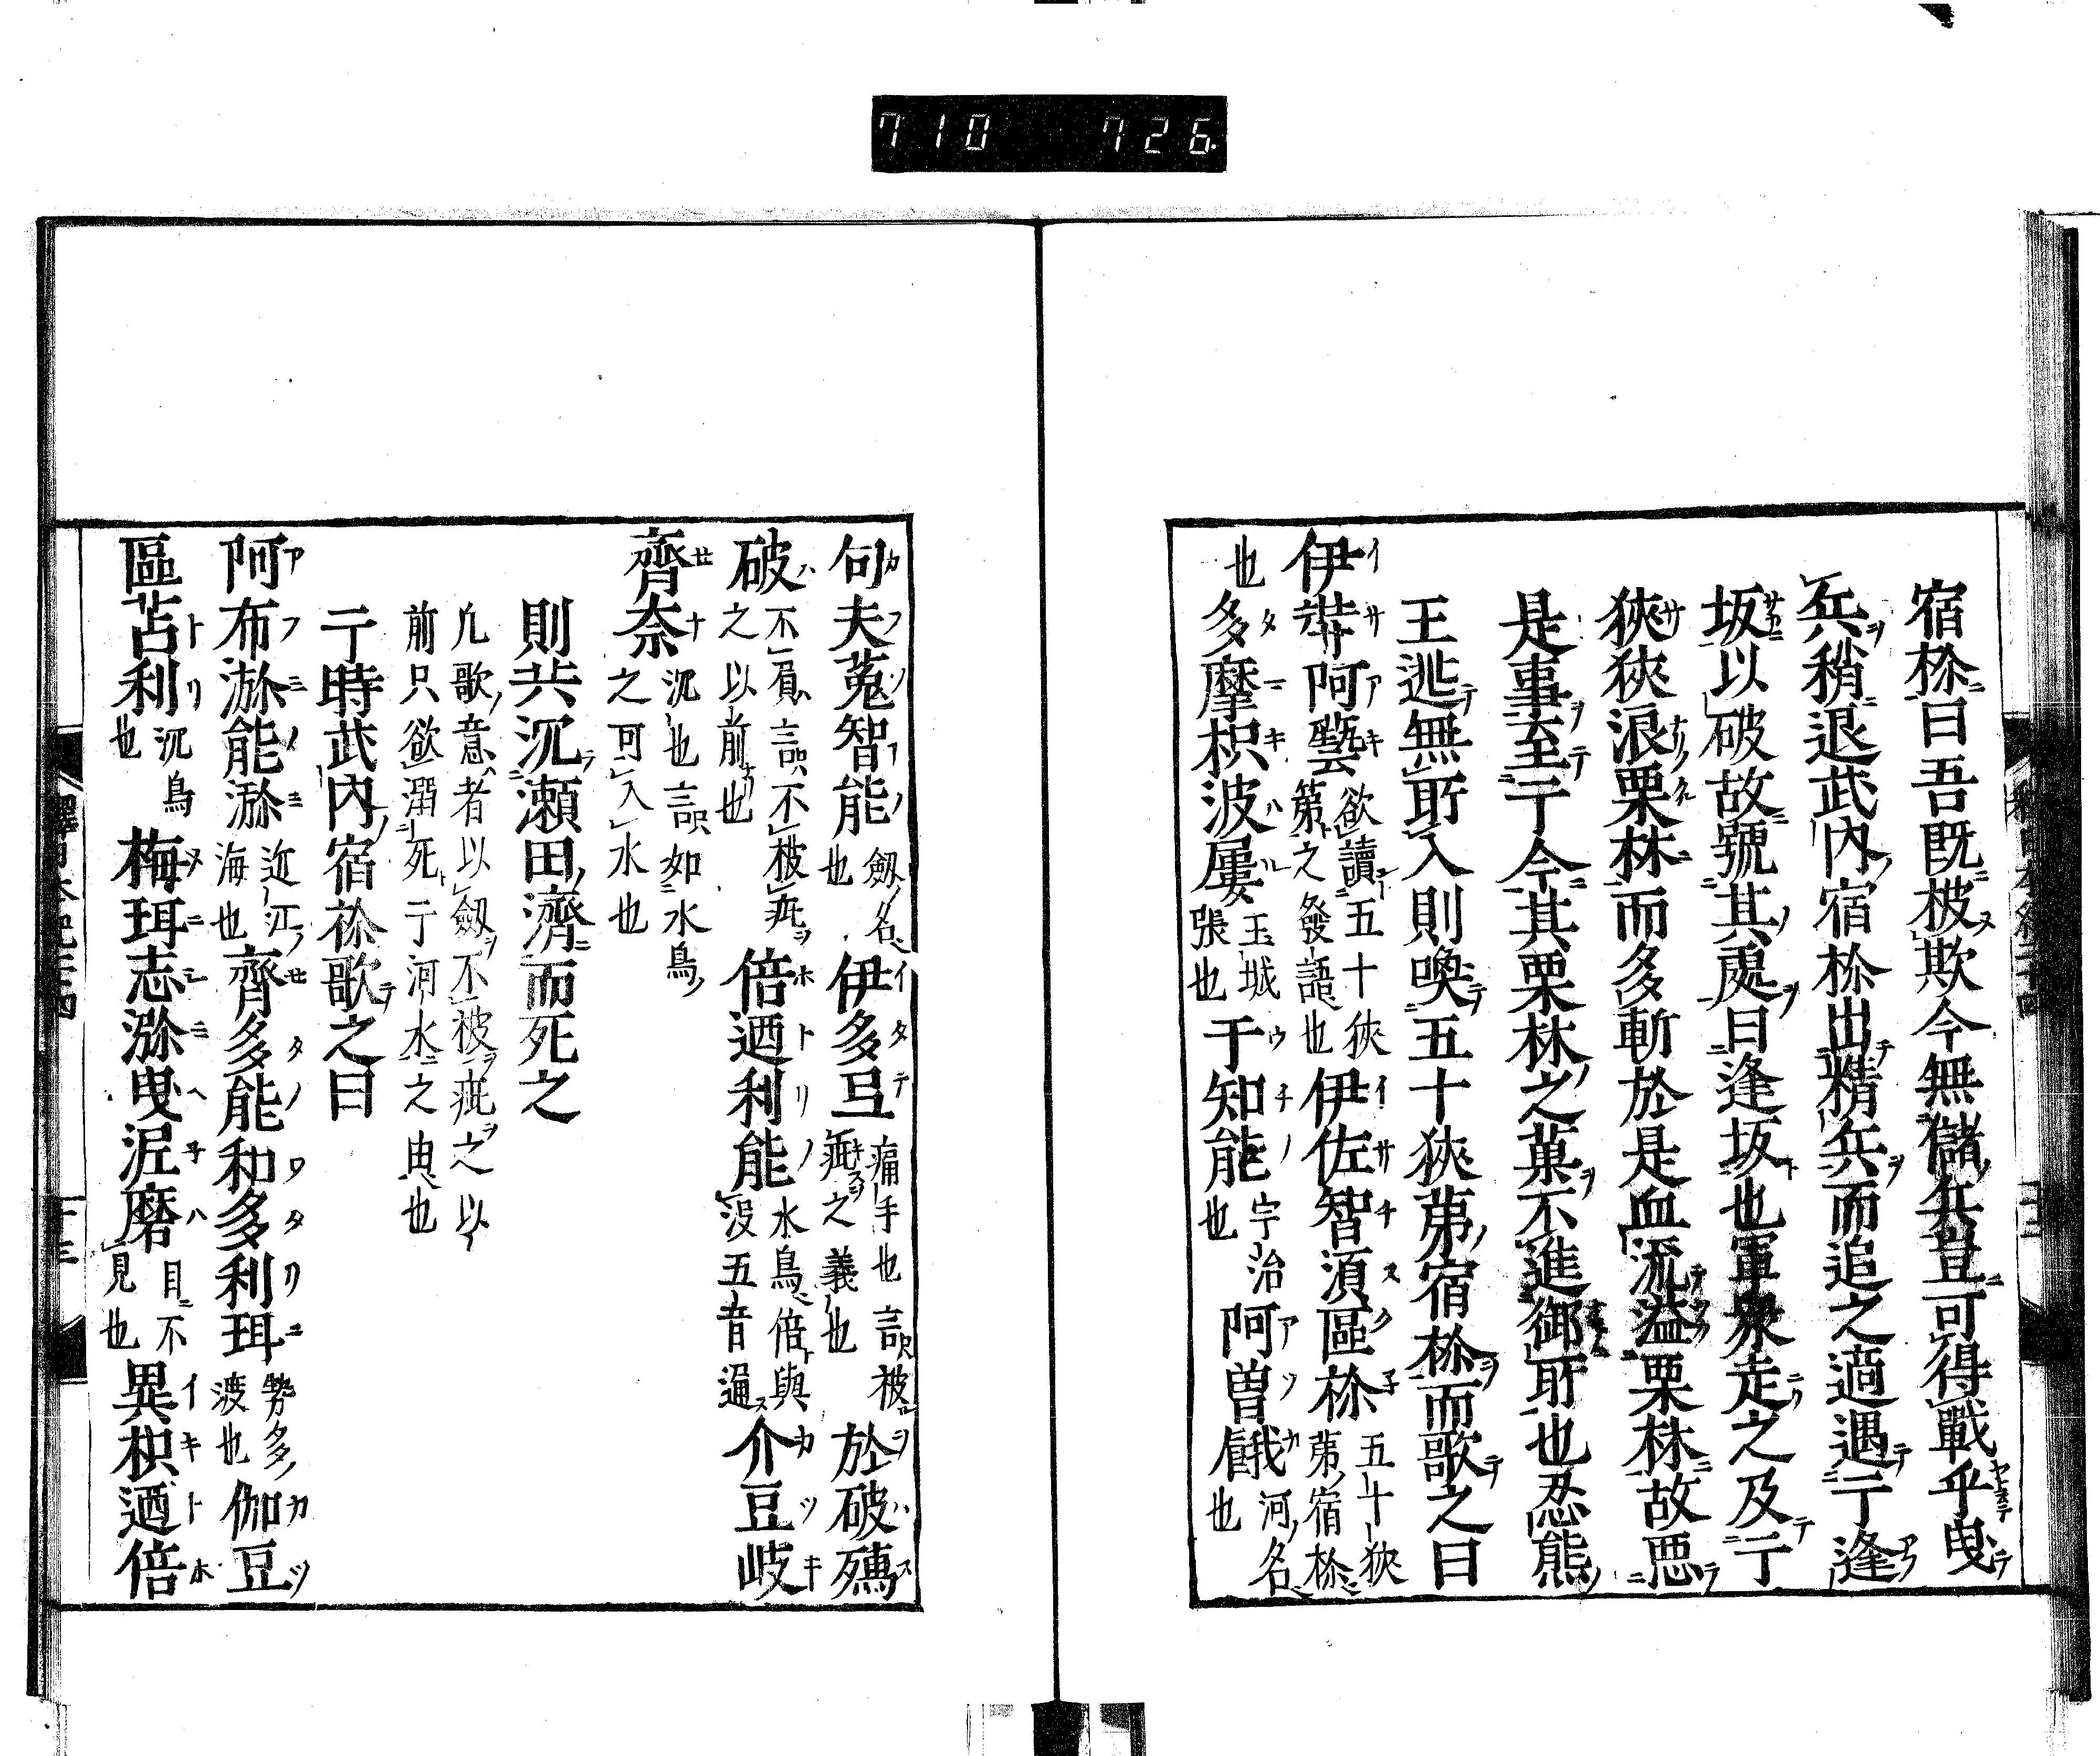 710 726
宿祢曰吾既被欺今無儲兵豈可得戰乎曳
兵稍退武内宿祢出精兵而追之適遇亍逢
坂以破故號其處曰逢坂也軍衆走之及亍
狹狹浪栗林而多斬於是血流溢栗林故惡
是事至亍今其栗林之菓不進御所也忍熊
王逃無所入則喚五十狹茅宿祢而歌之曰
伊弉阿藝欲讀五十狹茅之發語也伊佐智須區祢五十狹茅宿祢
也多摩枳波屢玉城張也于知能宇治也阿曽餓河名也
句夫菟智能劔名也伊多弖痛手也言被疵之義也於破孺
破不負言不被疵之以前也倍迺利能水鳥倍與没五音通介豆岐
齊奈沉也言如水鳥之可入水也
則共沉瀬田濟而死之
凢歌意者以劔不被疵之以
前只欲溺死亍河水之由也
亍時武内宿祢歌之曰
阿布瀰能瀰近江海也齊多能和多利珥勢多渡也伽豆
區苫利沉鳥也梅珥志瀰曳泥磨目不見也異枳迺倍